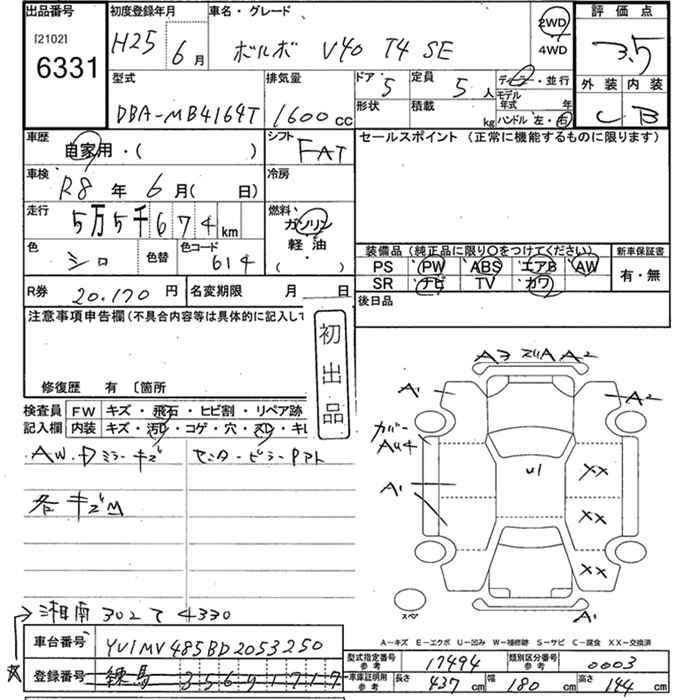 出品番号
[2102]
6331
初度登録年月
H25 6月
車名・グレード
ボルボ V40 T4 SE
2WD
4WD
評価点
3.5
型式
DBA-MB4164T
排気量
1600 cc
ドア 5
定員 5人
形状
積載 kg
ディーラー・並行
モデル年式 年
ハンドル 左・右
外装 内装
C B
車歴
自家用・( )
シフト
FAT
セールスポイント (正常に機能するものに限ります)
車検
R8年 6月( 日)
冷房
走行
5万5千674km
燃料
ガソリン
軽・油
( )
色
シロ
色替
色コード
614
装備品(純正品に限り〇をつけてください)
新車保証書
PS PW ABS エアB AW
SR ナビ TV カワ
有・無
R券 20.170 円
名変期限 月 日
後日品
注意事項申告欄(不具合内容等は具体的に記入して
初出品
修復歴 有 〔箇所
検査員記入欄
FW キズ・飛石・ヒビ割・リペア跡
内装 キズ・汚D・コゲ・穴・スレ・キレ
AW.Dミラーキズ
センターピラーPアト
各キズM
A3 A A2
A1
A2
カバー
AU4
A1
U1
XX
XX
XX
スペア
A1
→湘南 302 て 4330
A=キズ E=エクボ U=凹み W=補修跡 S=サビ C=腐食 XX=交換済
車台番号 YV1MV485BD2053250
登録番号 練馬
型式指定番号
参考
17494
類別区分番号
参考
0003
車庫証明用
参考
長さ 437 cm 幅 180 cm 高さ 144 cm